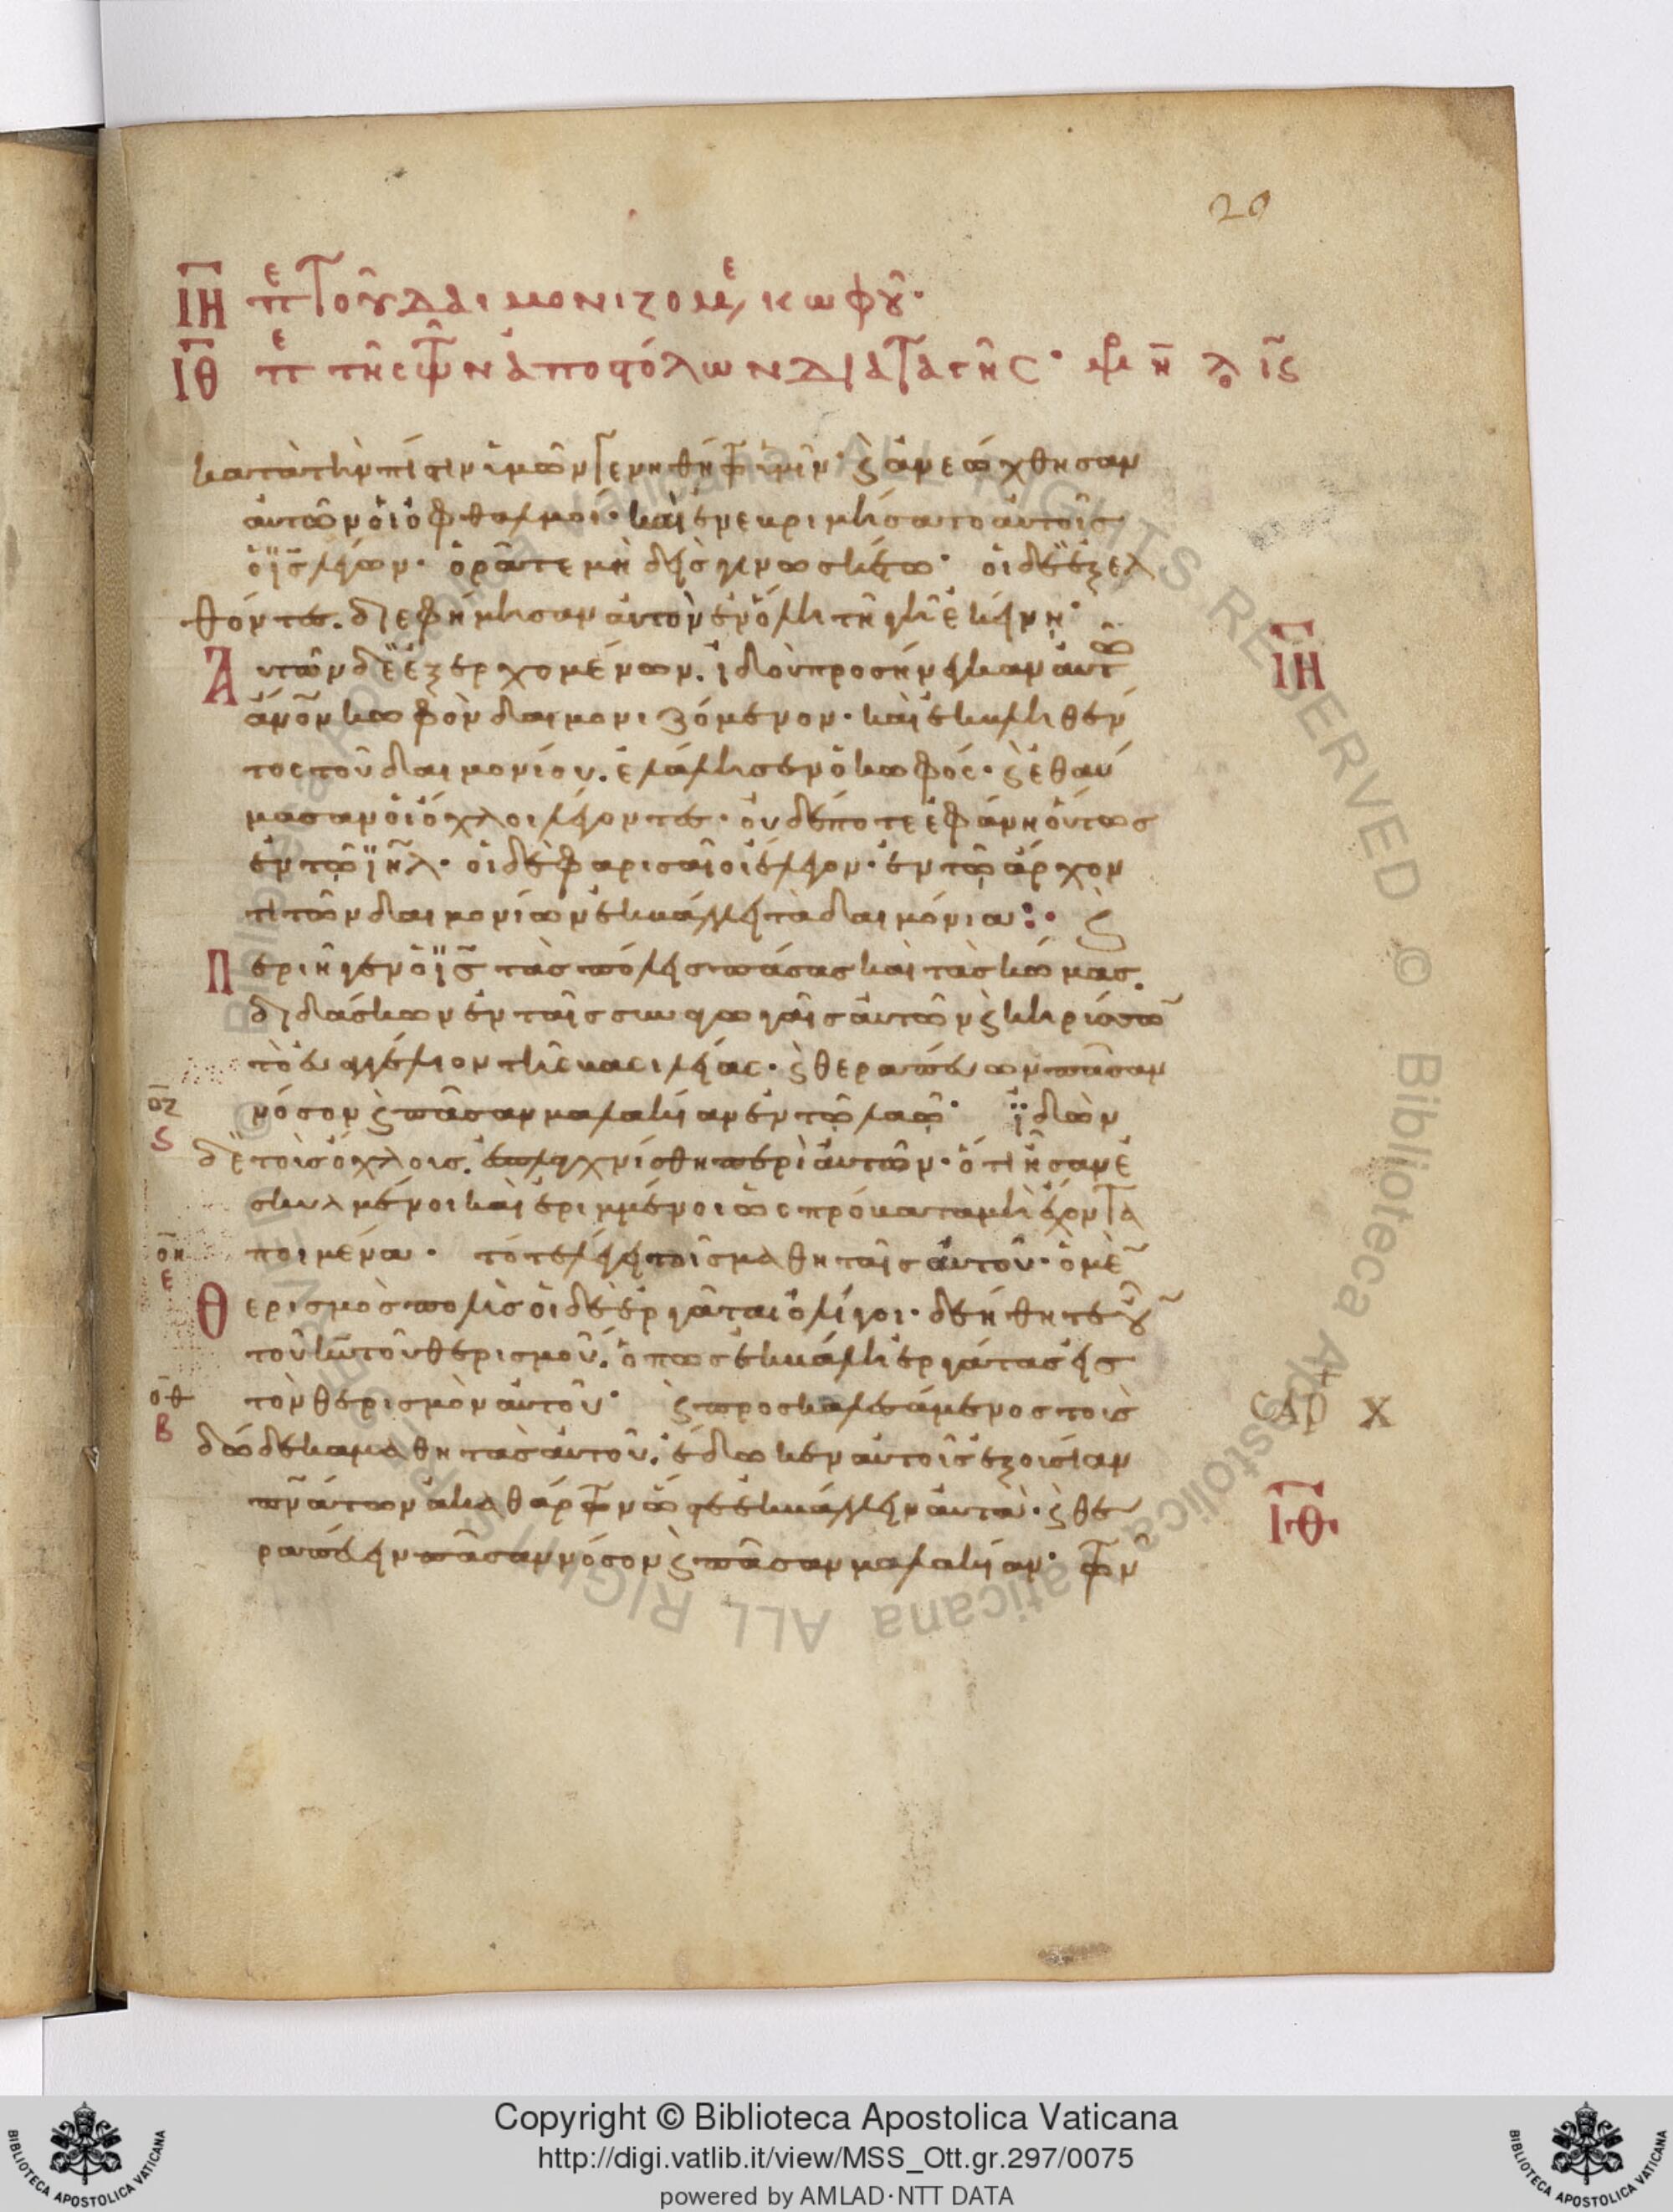 20
ΙΗ πε τοῦ δαιμονιζομε κωφοῦ·
ΙΘ πε τῆς τῶν ἀποστόλων διαταγῆς·
κατὰ τὴν πίστιν ὑμῶν γενηθήτω ὑμῖν· ϗ ἀνεώχθησαν
αὐτῶν οἱ ὀφθαλμοί· καὶ ἐνεβριμήσατο αὐτοῖς
ὁ ις λέγων· ὁρᾶτε μηδεὶς γινωσκέτω· οἱ δὲ ἐξελ
θόντες. διεφήμησαν αὐτὸν ἐν ὅλη τῆ γῆ ἐκείνη·
Αὐτῶν δὲ ἐξερχομένων. ἰδοὺ προσήνεγκαν αὐτῶ
ΙΗ
ἀνον κωφὸν δαιμονιζόμενον· καὶ ἐκβληθέν
τος τοῦ δαιμονίου. ἐλάλησεν ὁ κωφός· ϗ ἐθαύ
μασαν οἱ ὄχλοι λέγοντες· οὐδέποτε ἐφάνη οὕτως
ἐν τῶ ιηλ· οἱ δὲ φαρισαῖοι ἔλεγον· ἐν τῶ ἄρχον
τι τῶν δαιμονίων ἐκβάλλει τὰ δαιμόνια: · ϗ
Περιῆγεν ὁ ις τὰς πόλεις πάσας καὶ τὰς κώμας.
διδάσκων ἐν ταῖς συναγωγαῖς αὐτῶν ϗ κηρύσσω
τὸ εὐαγγέλιον τῆς βασιλείας· ϗ θεραπεύων πᾶσαν
οζ νόσον ϗ πᾶσαν μαλακίαν ἐν τῶ λαῶ· ἰδὼν
ς δὲ τοὺς ὄχλους. ἐσπλαγχνίσθη περὶ αὐτῶν· ὅτι ἦσαν ἐ
σκυλμένοι καὶ ἐριμμένοι ὡς πρόβατα μὴ ἔχοντα
οη ποιμένα· τότε λέγει τοῖς μαθηταῖς αὐτοῦ· ὁ μὲ
ε
Θερισμὸς πολὺς οἱ δὲ ἐργάται ὀλίγοι· δεήθητε οὖ
τοῦ κυ τοῦ θερισμοῦ. ὅπως ἐκβάλη ἐργάτας εἰς
οθ τὸν θερισμὸν αὐτοῦ· ϗ προσκαλεσάμενος τοὺς
CAP X
Β δώδεκα μαθητὰς αὐτοῦ. ἔδωκεν αὐτοῖς ἐξουσίαν
πνάτων ἀκαθάρτων ὥστε ἐκβάλλειν αὐτά· ϗ θε
ΙΘ
ραπεύειν πᾶσαν νόσον ϗ πᾶσαν μαλακίαν· τῶν
Copyright © Biblioteca Apostolica Vaticana
http://digi.vatlib.it/view/MSS_Ott.gr.297/0075
powered by AMLAD·NTT DATA
BIBLIOTECA APOSTOLICA VATICANA
BIBLIOTECA APOSTOLICA VATICANA